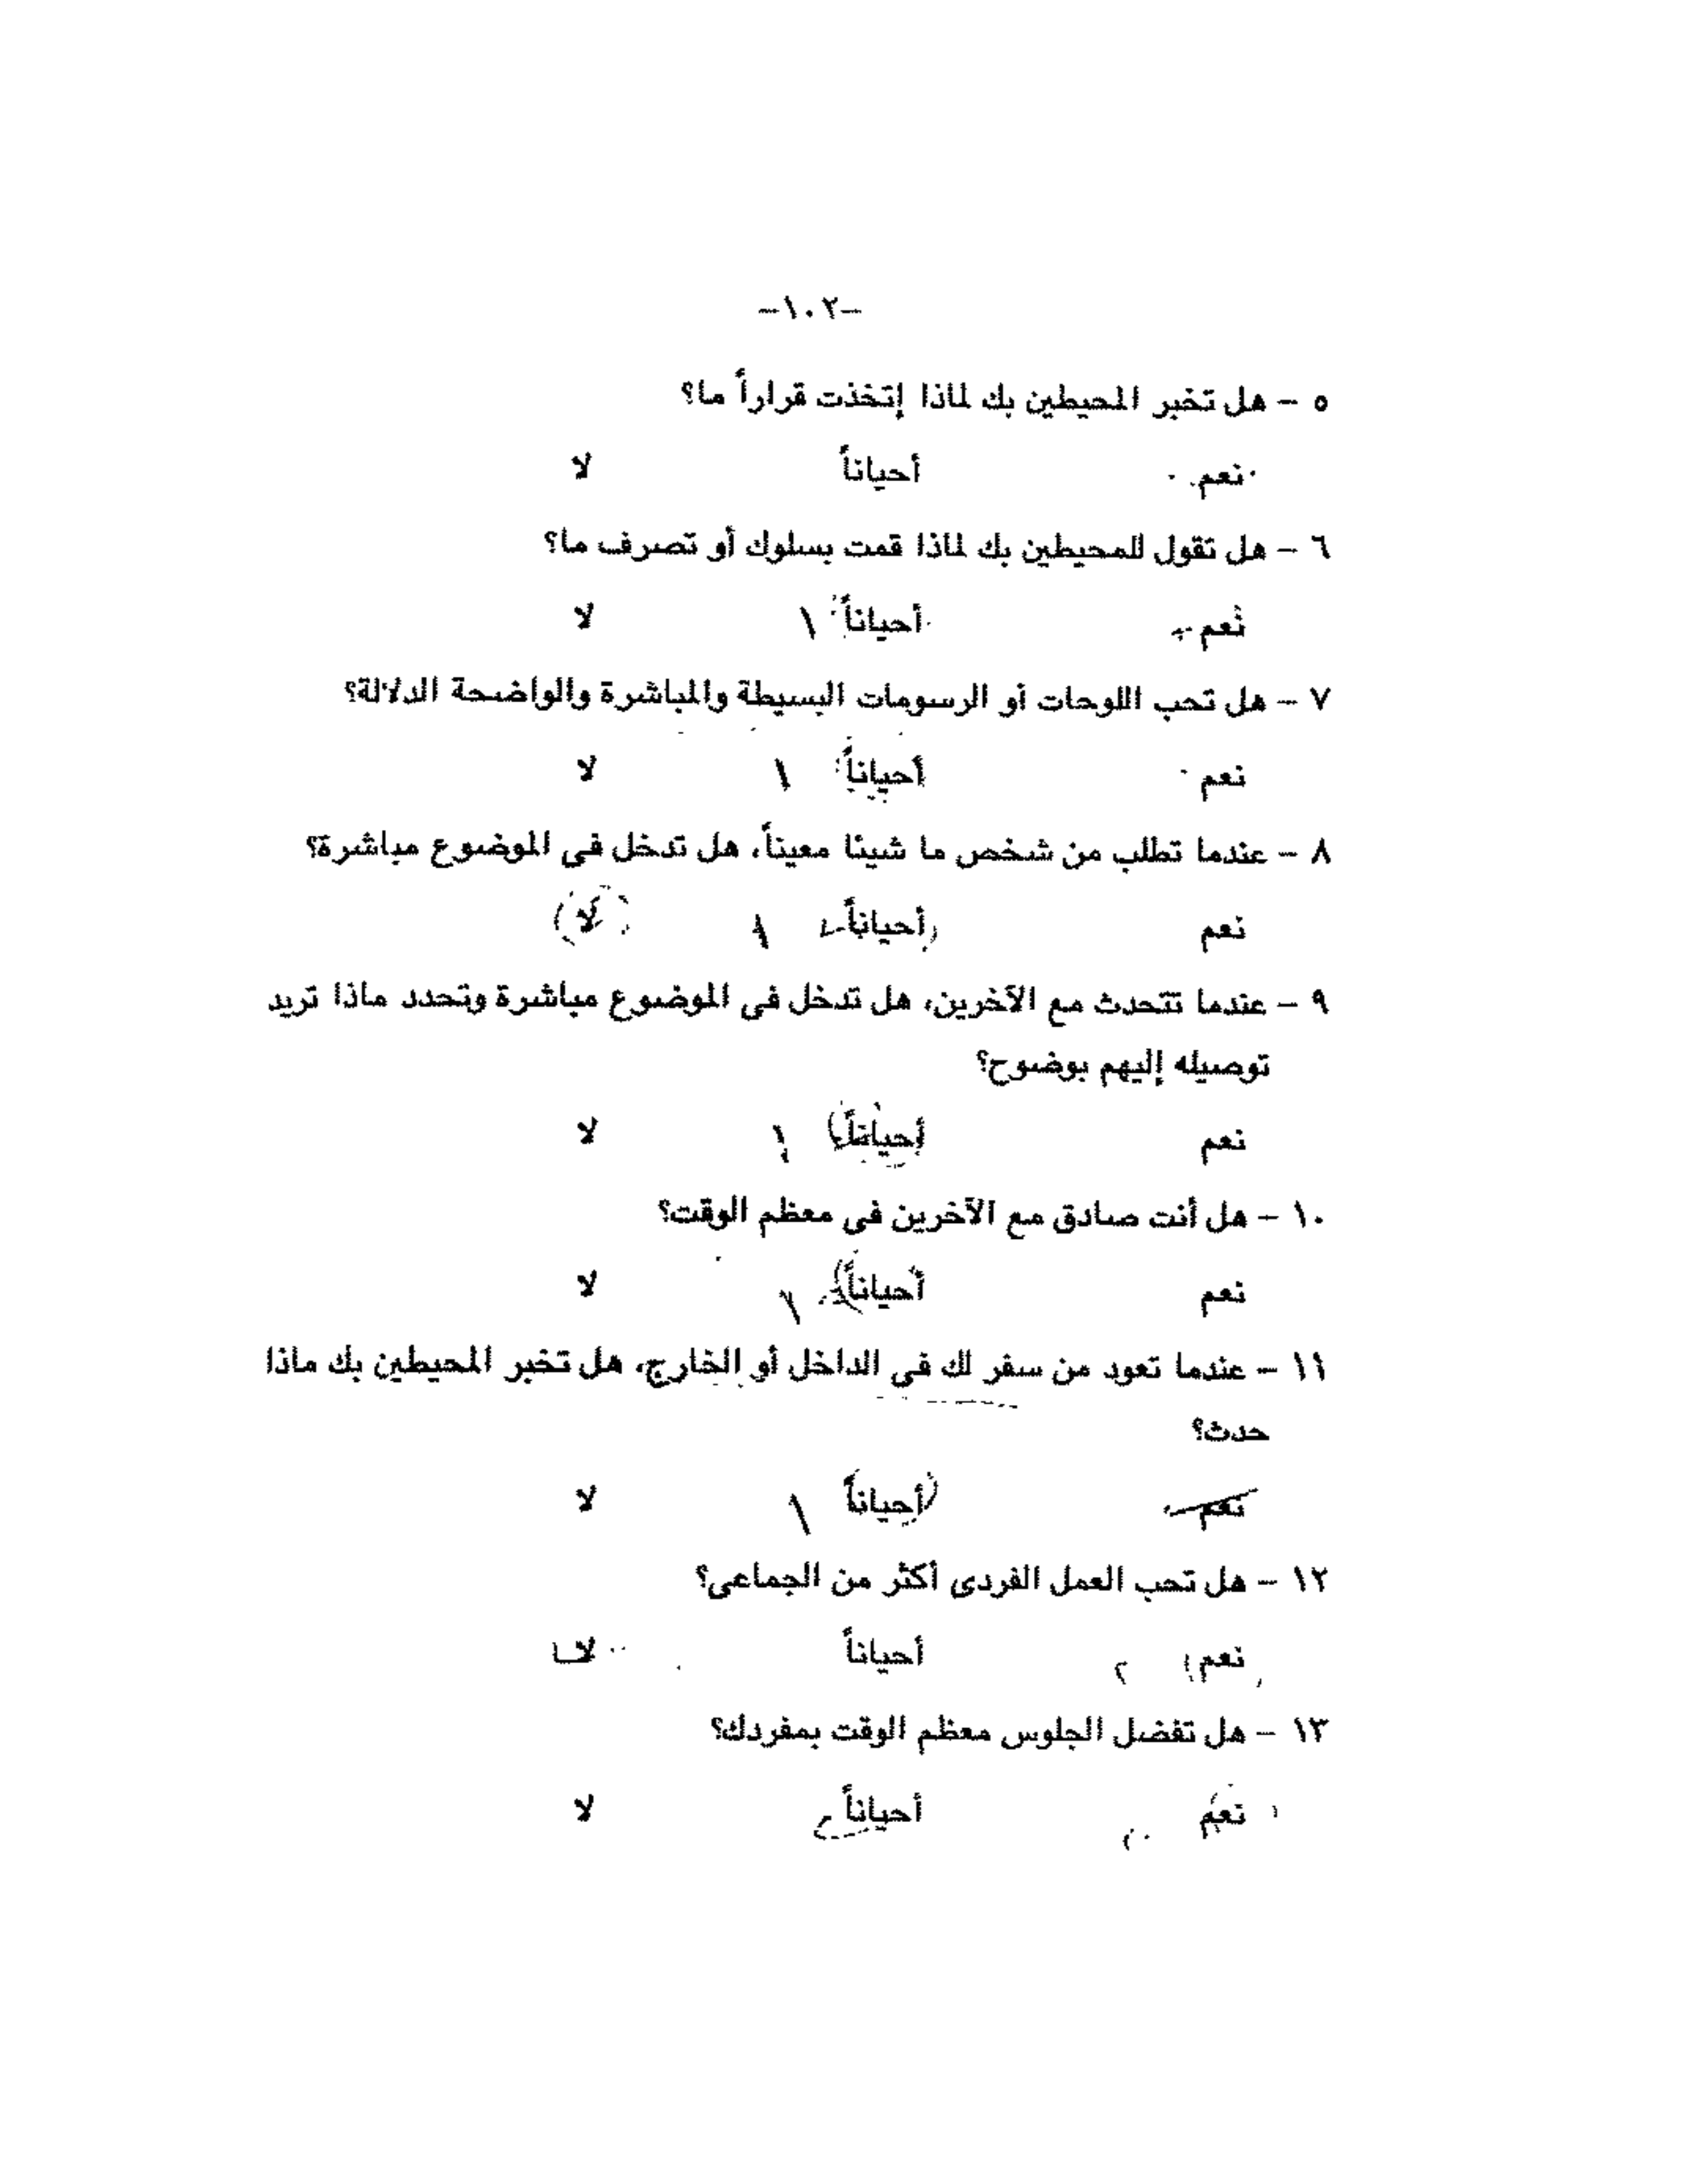 -١٠٢-
٥ - هل تخبر المحيطين بك لماذا إتخذت قراراً ما؟
نعم أحياناً لا
٦ - هل تقول للمحيطين بك لماذا قمت بسلوك أو تصرف ما؟
نعم أحياناً ١ لا
٧ - هل تحب اللوحات أو الرسومات البسيطة والمباشرة والواضحة الدلالة؟
نعم أحياناً ١ لا
٨ - عندما تطلب من شخص ما شيئا معيناً، هل تدخل فى الموضوع مباشرة؟
نعم أحياناً ١ لا
٩ - عندما تتحدث مع الآخرين، هل تدخل فى الموضوع مباشرة وتحدد ماذا تريد
توصيله إليهم بوضوح؟
نعم أحياناً ١ لا
١٠ - هل أنت صادق مع الآخرين فى معظم الوقت؟
نعم أحياناً ١ لا
١١ - عندما تعود من سفر لك فى الداخل أو الخارج، هل تخبر المحيطين بك ماذا
حدث؟
نعم أحياناً ١ لا
١٢ - هل تحب العمل الفردى أكثر من الجماعى؟
نعم أحياناً لا
١٣ - هل تفضل الجلوس معظم الوقت بمفردك؟
نعم أحياناً لا